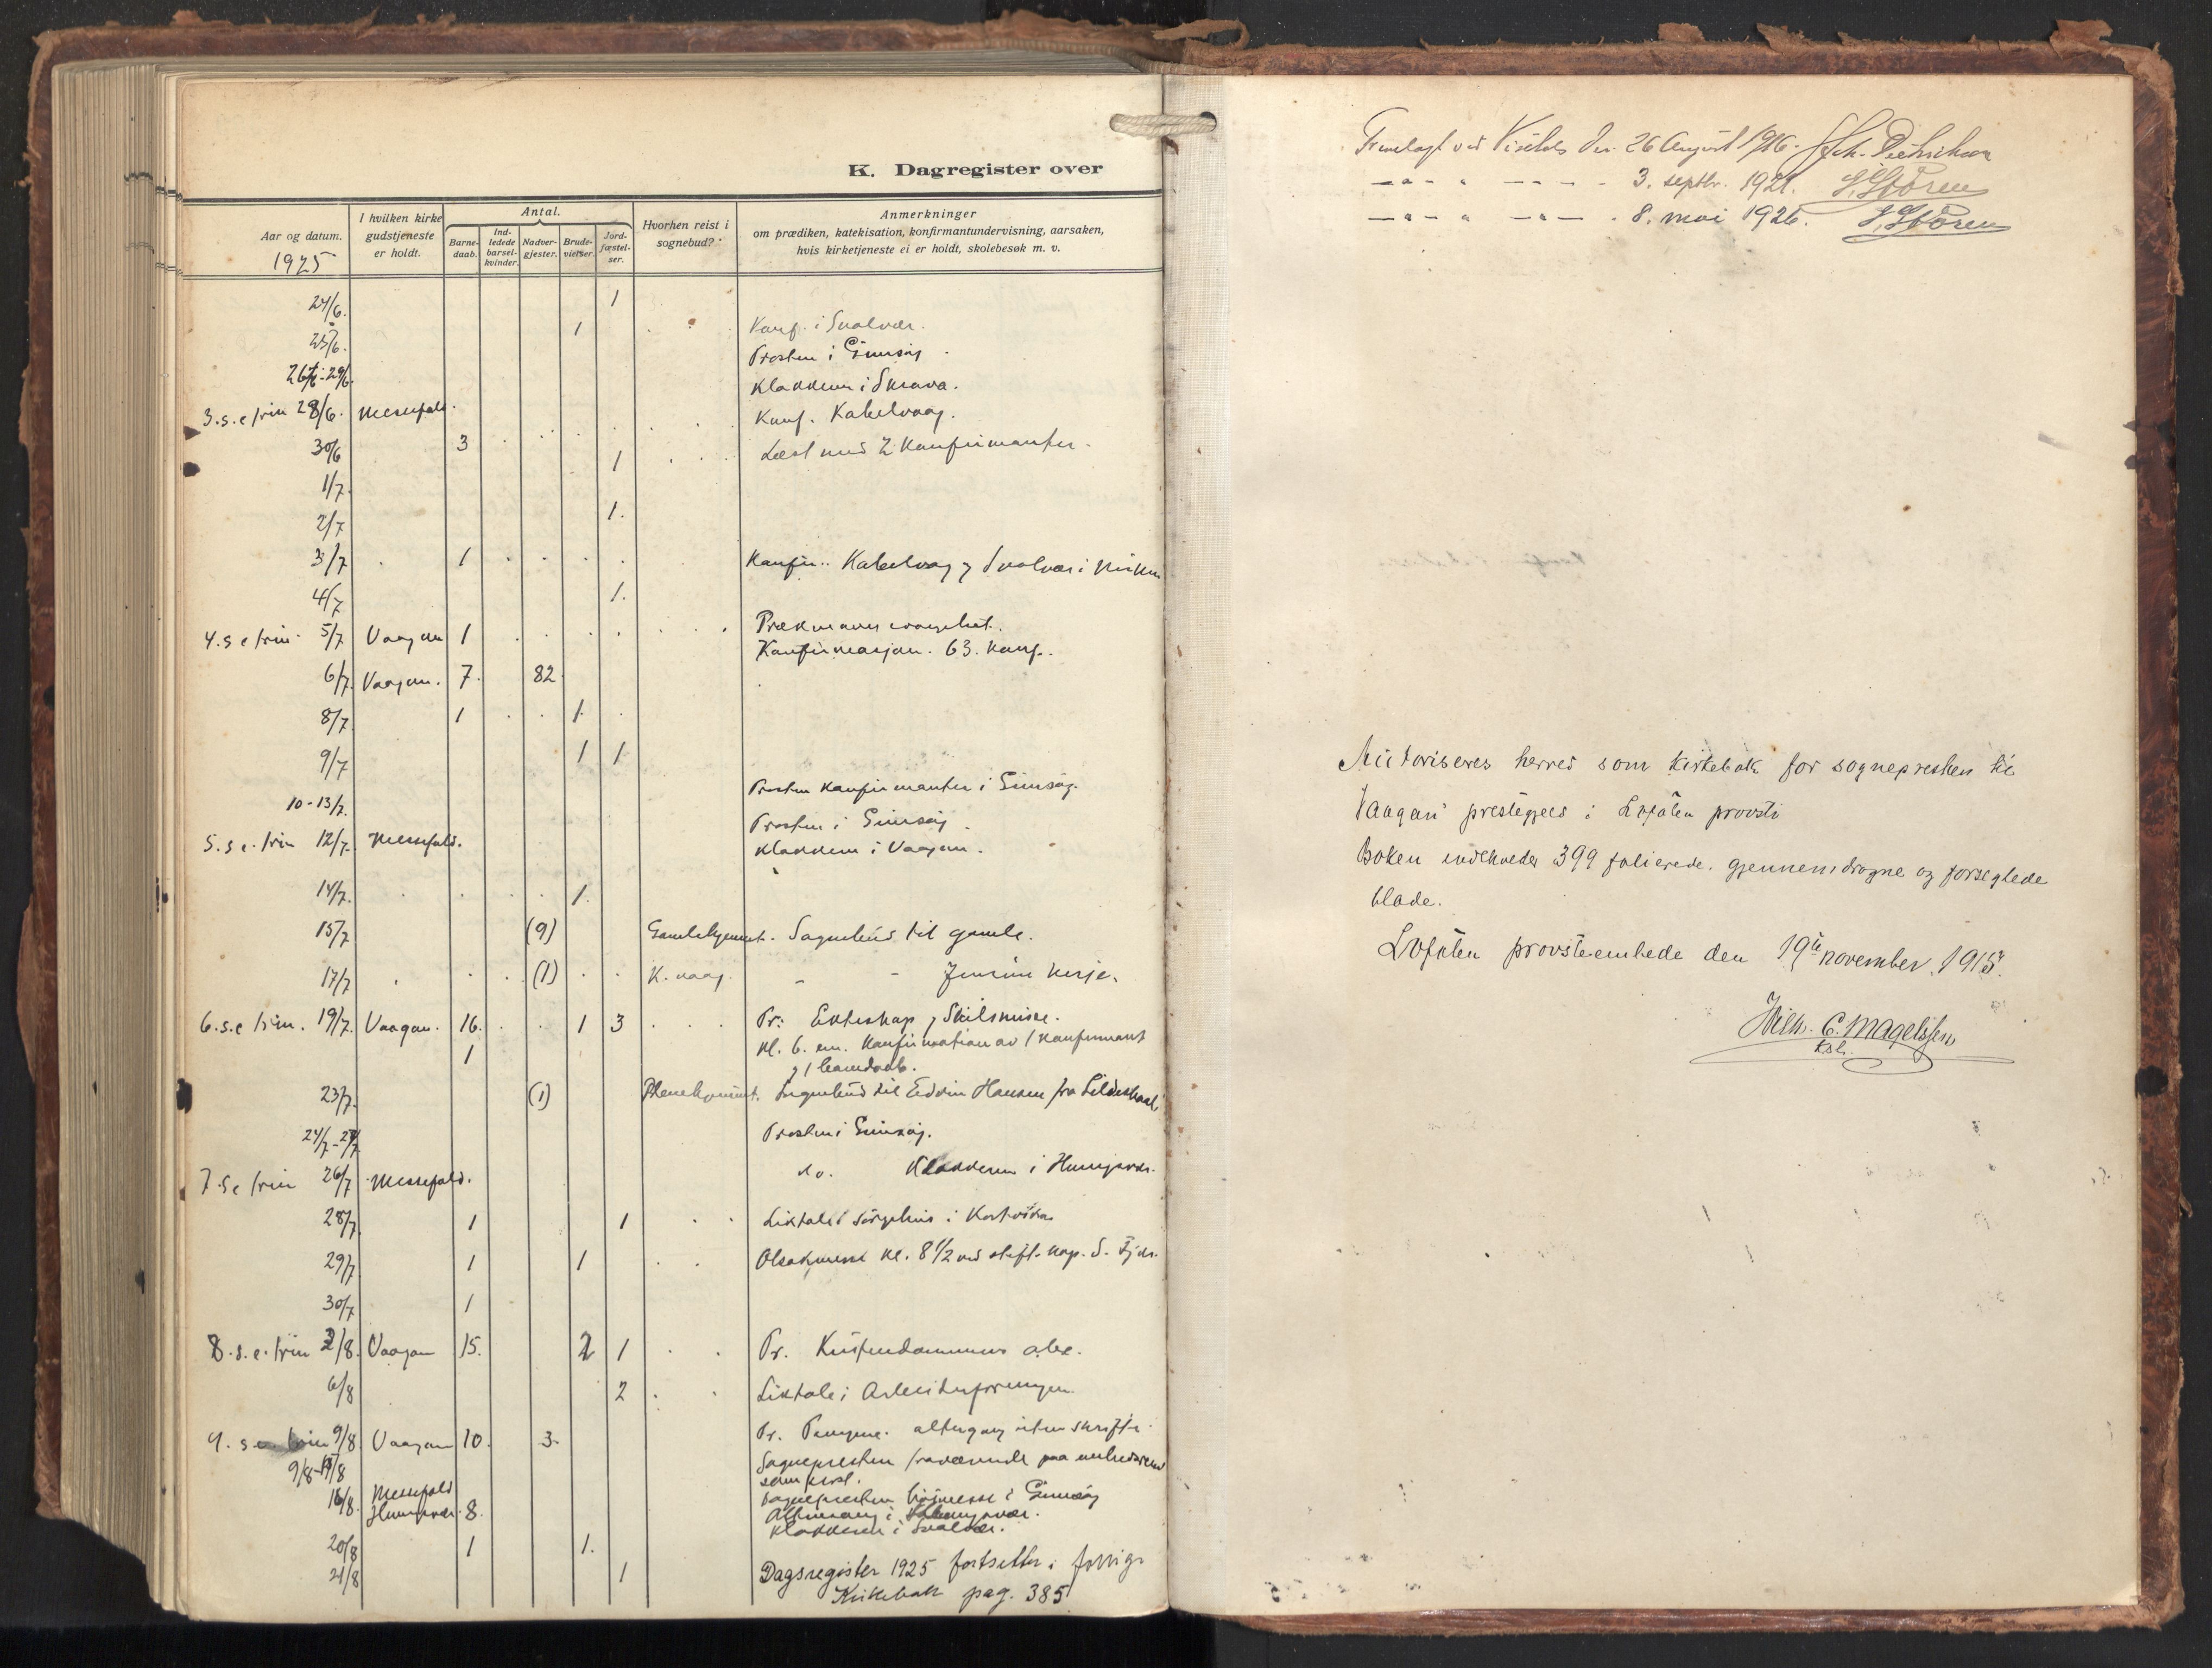 K. Dagregister over
Aar og datum.
1925
I hvilken kirke gudstjeneste er holdt.
Antal.
Barne-daab.
Ind-ledede barsel-kvinder.
Nadver-gjester.
Brude-vielser.
Jord-fæstel-ser.
Hvorhen reist i sognebud?
Anmerkninger
om prædiken, katekisation, konfirmantundervisning, aarsaken,
hvis kirketjeneste ei er holdt, skolebesøk m. v.
24/6. 1
25/6. 1 Konf. i Svolvær.
26/6-29/6. Prosten i Gimsøy.
Klokkeren i Skrova.
3. s. e. trin 28/6. Messefald. Konf. Kabelvaag.
30/6 3 1 Læst med 2 Konfirmanter.
1/7.
2/7 1.
3/7 1 Konfir. Kabelvaag og Svolvær i Kirken
4/7 1.
4. s. e. trin 5/7 Vaagan 1
Konfirmasjon. 63. konf.
6/7. Vaagan. 7. 82
8/7 1 1.
9/7 1 1
10-13/7. Prosten konfirmanter i Gimsøy.
Prosten i Gimsøy.
5. s. e. trin 12/7. Messefald. Klokkeren i Vaagan.
14/7. 1.
15/7 (9) Gamlehjemmet. Sognebud til gamle.
17/7 (1) K. vaag. - -
6. s. e. trin. 19/7. Vaagan. 16. 1 3 Pr: Ekteskap og Skilsmisse.
1 Kl. 6. em. Konfirmation av 1 Konfirmant
og 1 barnedaab.
23/7. (1) Pleiehjemmet. Sognebud til Edvin Hansen fra
24/7-27/7 Prosten i Gimsøy.
7. s. e. trin 26/7 Messefald. do. Klokkeren i Henningsvær.
28/7. 1 1 Liktale i Sørgehus i
29/7 1 1 Olsokmesse kl. 8 1/2 ved stift. kap.
30/7 1
8. s. e. trin 2/8. Vaagan 15. 2 1 Pr. Kristendommens
6/8 2 Liktale i Arbeiderforeningen.
9. s. e. trin 9/8 Vaagan 10. 3. Pr. Pengene. altergang uten skrifte.
9/8-15/8 Sognepresten fraværende paa embedsreise
som prost.
16/8. Messefald Sognepresten høimesse i Gimsøy
Henningsvær. 8. Altersang i Henningsvær.
Klokkeren i Svolvær.
20/8 1 1.
21/8 1 Dagsregister 1925 fortsetter i forrige
Kirkebok pag. 385
Fremlagt ved Visitas den 26 August 1916. Joh. Dietrichson
- " - " - " - 3. septbr. 1921. J. Støren
- " - " - " - 8. mai 1926. J. Støren
Autoriseres herved som kirkebok for sognepresten til
Vaagan prestegjeld i Lofoten provsti
Boken indeholder 399 folierede, gjennemdragne og forseglede
blade.
Lofoten provsteembede den 19de november 1915.
Wilh. C. Magelssen
kst.